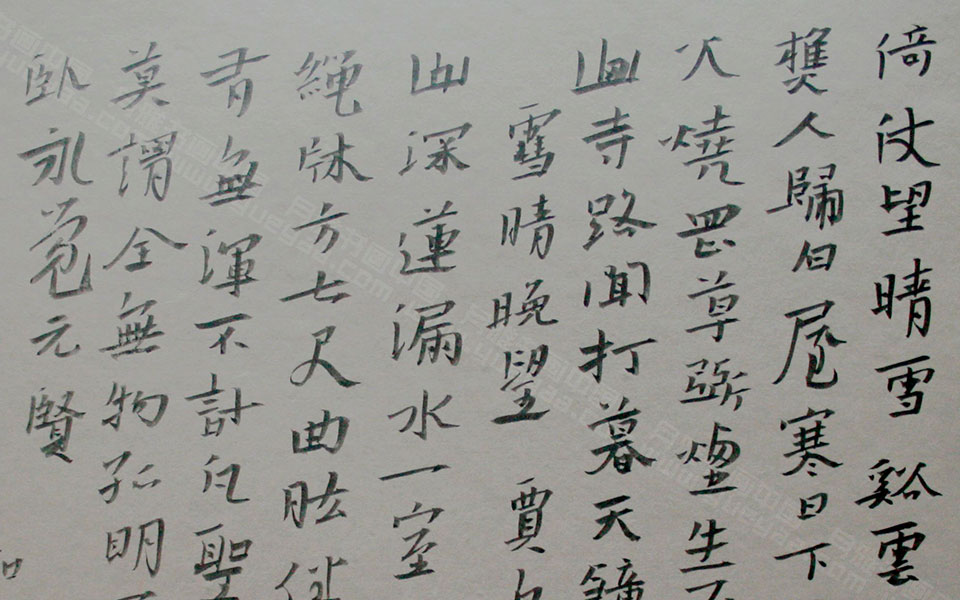 倚仗望晴雪谿雲
樵人歸白屋寒日下
火燒岡草斷煙生
山寺路聞打暮天鐘
雪晴晚望 賈
山深蓮漏水一室
繩牀方七尺曲肱
有無渾不計凡聖
莫謂全無物孤明
臥永覺元賢